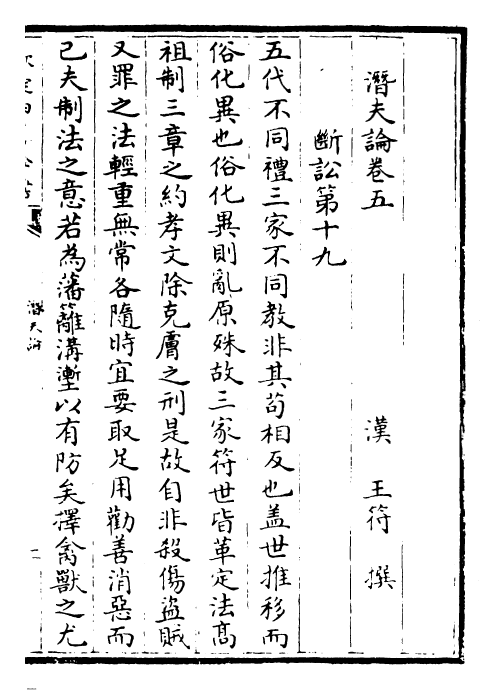 潛夫論卷五
漢 王符 撰
斷訟第十九
五代不同禮三家不同教非其苟相反也蓋世推移而
俗化異也俗化異則亂原殊故三家符世皆革定法高
祖制三章之約孝文除克膚之刑是故自非殺傷盜賊
文罪之法輕重無常各隨時宜要取足用勸善消惡而
已夫制法之意若為藩籬溝壍以有防矣擇禽獸之尤
潛夫論
一